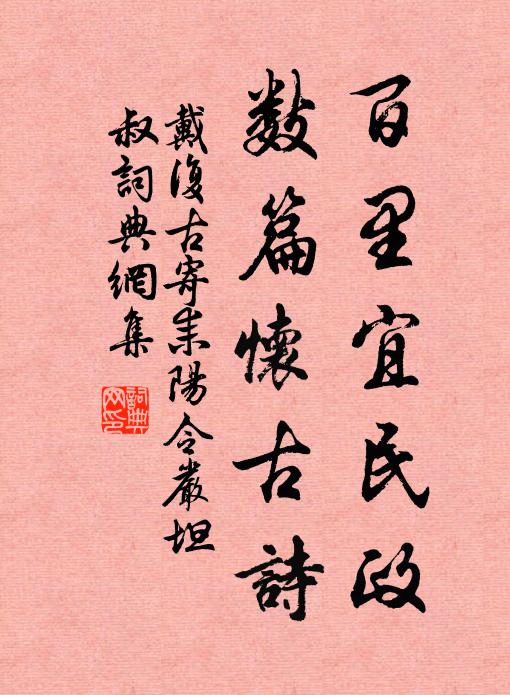 百里宜民政
数篇懷古詩
戴復古寄耒陽令嚴坦
叔詞典網集
詞典
网印